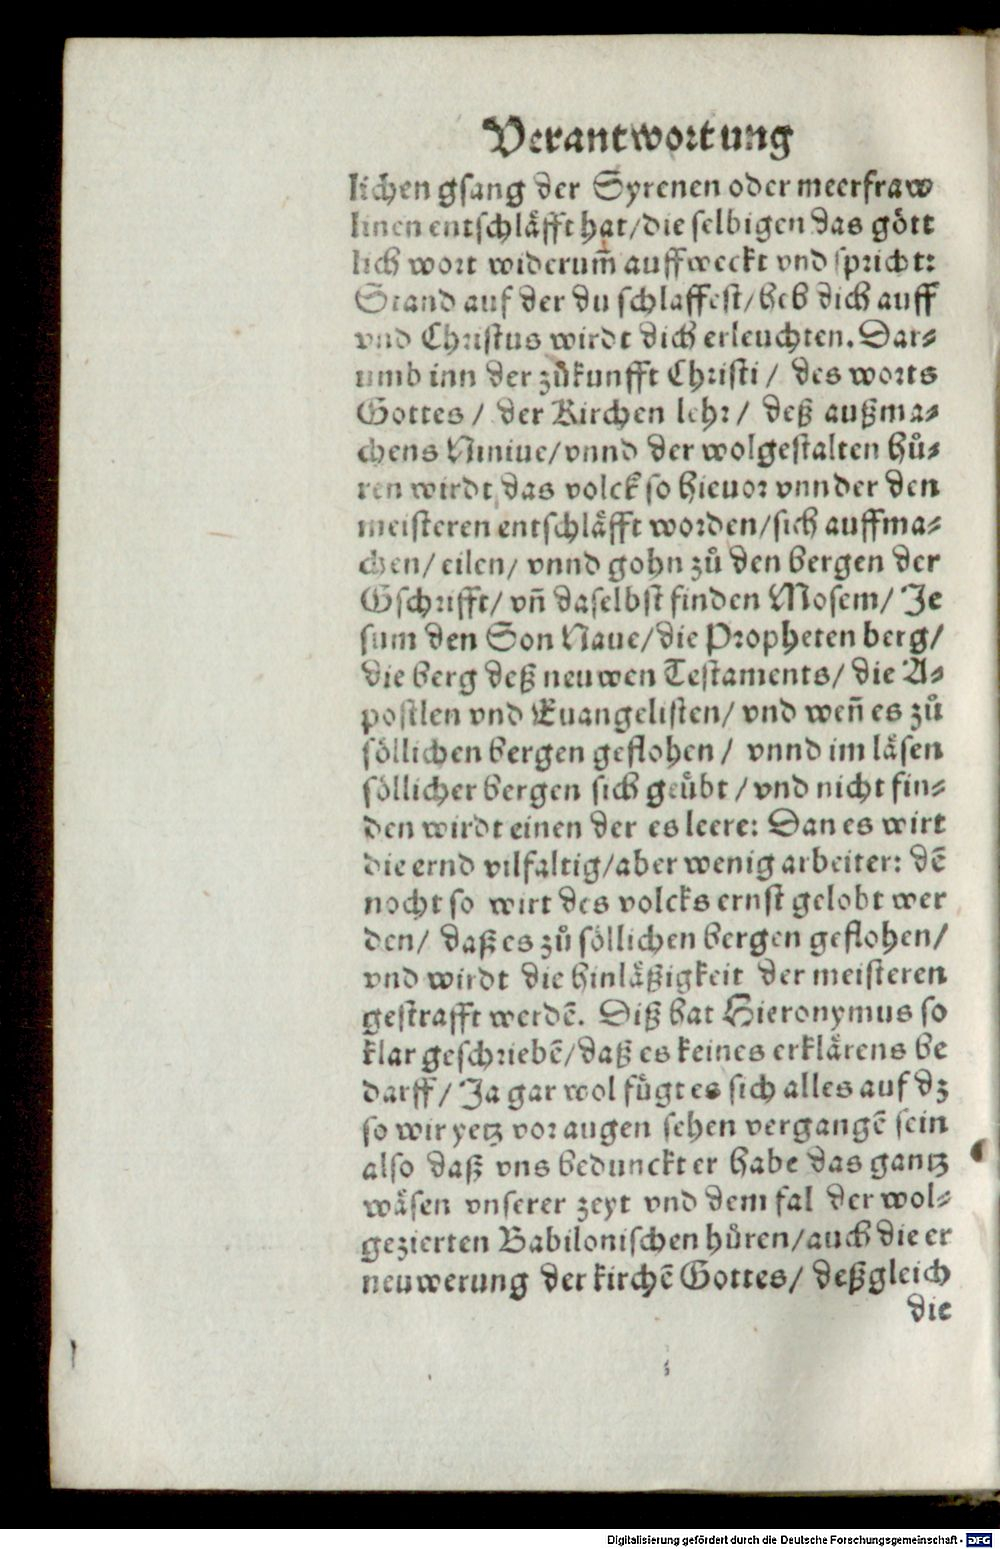 Verantwortung
lichen gsang der Syrenen oder meerfraw
linen entschläfft hat/die selbigen das gött
lich wort widerum̃ auffweckt vnd spricht:
Stand auf der du schlaffest/heb dich auff
vnd Christus wirdt dich erleuchten. Dar-
umb inn der zůkunfft Christi / des worts
Gottes / der Kirchen lehr / deß außma-
chens Niniue/vnnd der wolgestalten hů-
ren wirdt das volck so hieuor vnnder den
meisteren entschläfft worden/sich auffma-
chen/ eilen/ vnnd gohn zů den bergen der
Gschrifft/ vñ daselbst finden Mosem/ Je
sum den Son Naue/die Propheten berg/
die berg deß neuwen Testaments/ die A-
postlen vnd Euangelisten/ vnd weñ es zů
söllichen bergen geflohen / vnnd im läsen
söllicher bergen sich geůbt / vnd nicht fin-
den wirdt einen der es leere: Dan es wirt
die ernd vilfaltig/aber wenig arbeiter: dẽ
nocht so wirt des volcks ernst gelobt wer
den/ daß es zů söllichen bergen geflohen/
vnd wirdt die hinläßigkeit der meisteren
gestrafft werdẽ. Diß hat Hieronymus so
klar geschriebẽ/daß es keines erklärens be
darff / Ja gar wol fůgt es sich alles auf dz
so wir yetz vor augen sehen vergangẽ sein
also daß vns bedunckt er habe das gantz
wäsen vnserer zeyt vnd dem fal der wol-
gezierten Babilonischen hůren/auch die er
neuwerung der kirchẽ Gottes/ deßgleich
die
Digitalisierung gefördert durch die Deutsche Forschungsgemeinschaft - DFG